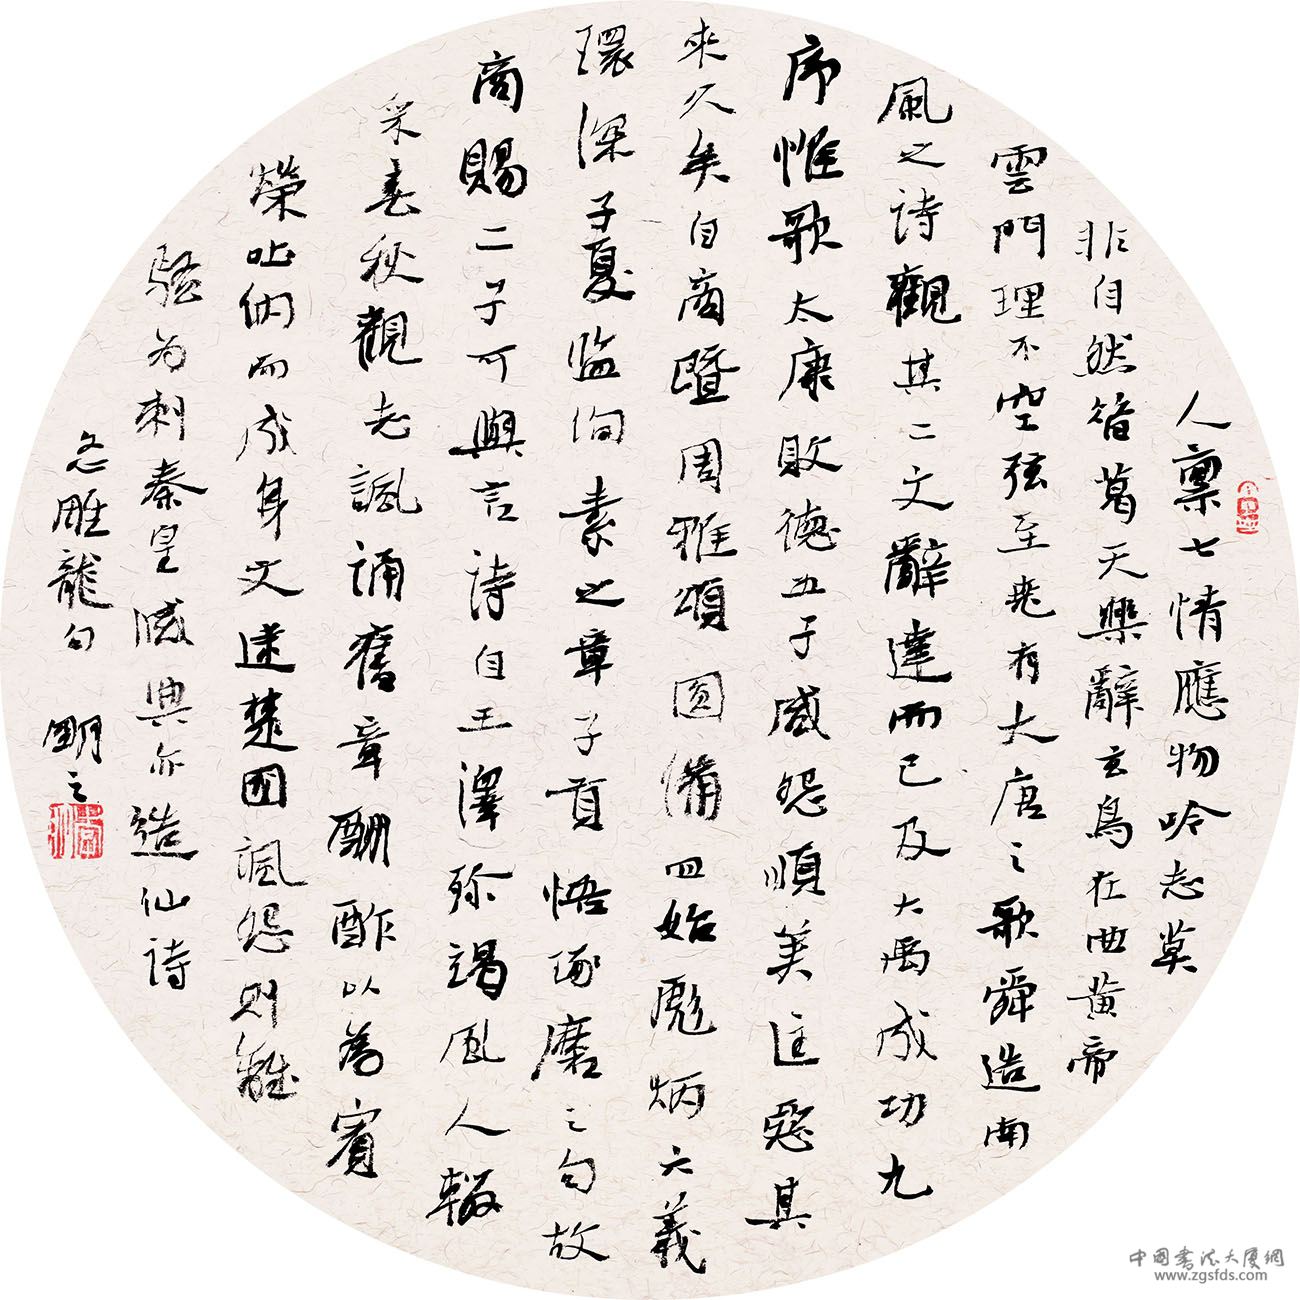 人禀七情應物吟志莫
非自然昔葛天樂辭玄鳥在曲黄帝
雲門理不空弦至堯有大唐之歌舜造南
風之詩觀其二文辭達而已及大禹成功九
序惟歌太康敗德五子咸怨順美匡惡其
來久矣自商暨周雅頌圓備四始彪炳六義
環深子夏监絢素之章子貢悟琢磨之句故
商賜二子可與言詩自王澤殄竭風人輟
采春秋觀志諷誦舊章酬酢以為賓
榮吐納而成身文逮楚國諷怨則離
騷為刺秦皇滅典亦造仙詩
文心雕龍句 朙之
中國書法大厦網
www.zgsfds.com